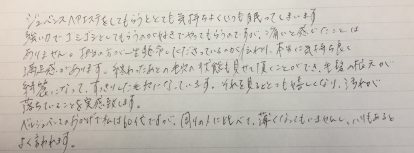 ジュベンスヘアエステをしてもらうととても気持ちよくいつも眠ってしまいます
強い力でゴシゴシとしてもらうのが好きでやってもらうのですが、痛いと感じたことは
ありません。担当の方が一生懸命にしてくださっているのが伝わり、本当に気持ち良く
満足感があります。終わったあとの毛穴の状態も見せて頂くことができ、毛髪の根元が
綺麗になって、すっきりした毛穴になっています。それを見るととっても嬉しくなり、汚れが
落ちていることを実感致します。
ヘルジュベンスのおかげで私は60代ですが、周りの人に比べて、薄くなってもいませんし、ハリもあると
よく言われます。